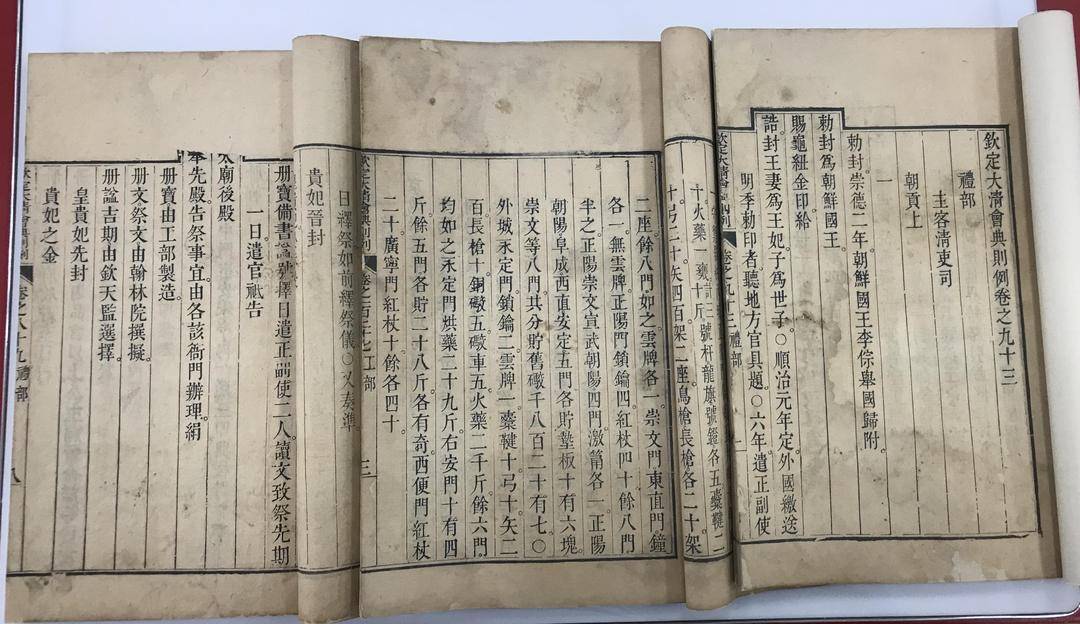 欽定大清會典則例卷之九十三
禮部
主客清吏司
朝貢上
一
勅封崇德二年朝鮮國王李倧舉國歸附。
勅封爲朝鮮國王。
賜龜紐金印給
誥封王妻爲王妃子爲世子。○順治元年定外國繳送
明季勅印者聽地方官具題。○六年遣正副使
欽定大清會典則例 卷之九十三 禮部 一
十火藥 十斤 號杆龍旗號纛各五櫜鞬二
十弓二十矢四百架二座鳥槍長槍各二十架
二座餘八門如之雲牌各一崇文門東直門鐘
各一無雲牌正陽門鎖鑰四紅杖四十餘八門
半之正陽崇文宣武朝陽四門激筩各一正陽
朝陽阜成西直安定五門各貯墊板十有六塊
崇文等八門其分貯舊礮千八百二十有七。○
外城永定門鎖鑰二雲牌一櫜鞬十弓十矢二
百長槍十銅礮五礮車五火藥二千斤餘六門
均如之永定門烘藥二十九斤右安門十有四
斤餘五門各貯二十八斤各有奇西便門紅杖
二十廣寧門紅杖十餘各四十。
欽定大清會典則例 工部 三
日繹祭如前繹祭儀○又奏準
貴妃晉封
册寶備書謚號擇日遣正副使二人讀文致祭先期
一日遣官祇告
太廟後殿
奉先殿告祭事宜由各該衙門辦理絹
册寶由工部製造。
册文祭文由翰林院撰擬。
册謚吉期由欽天監選擇。
皇貴妃先封
貴妃之金
欽定大清會典則例 卷之八十九 禮部 八